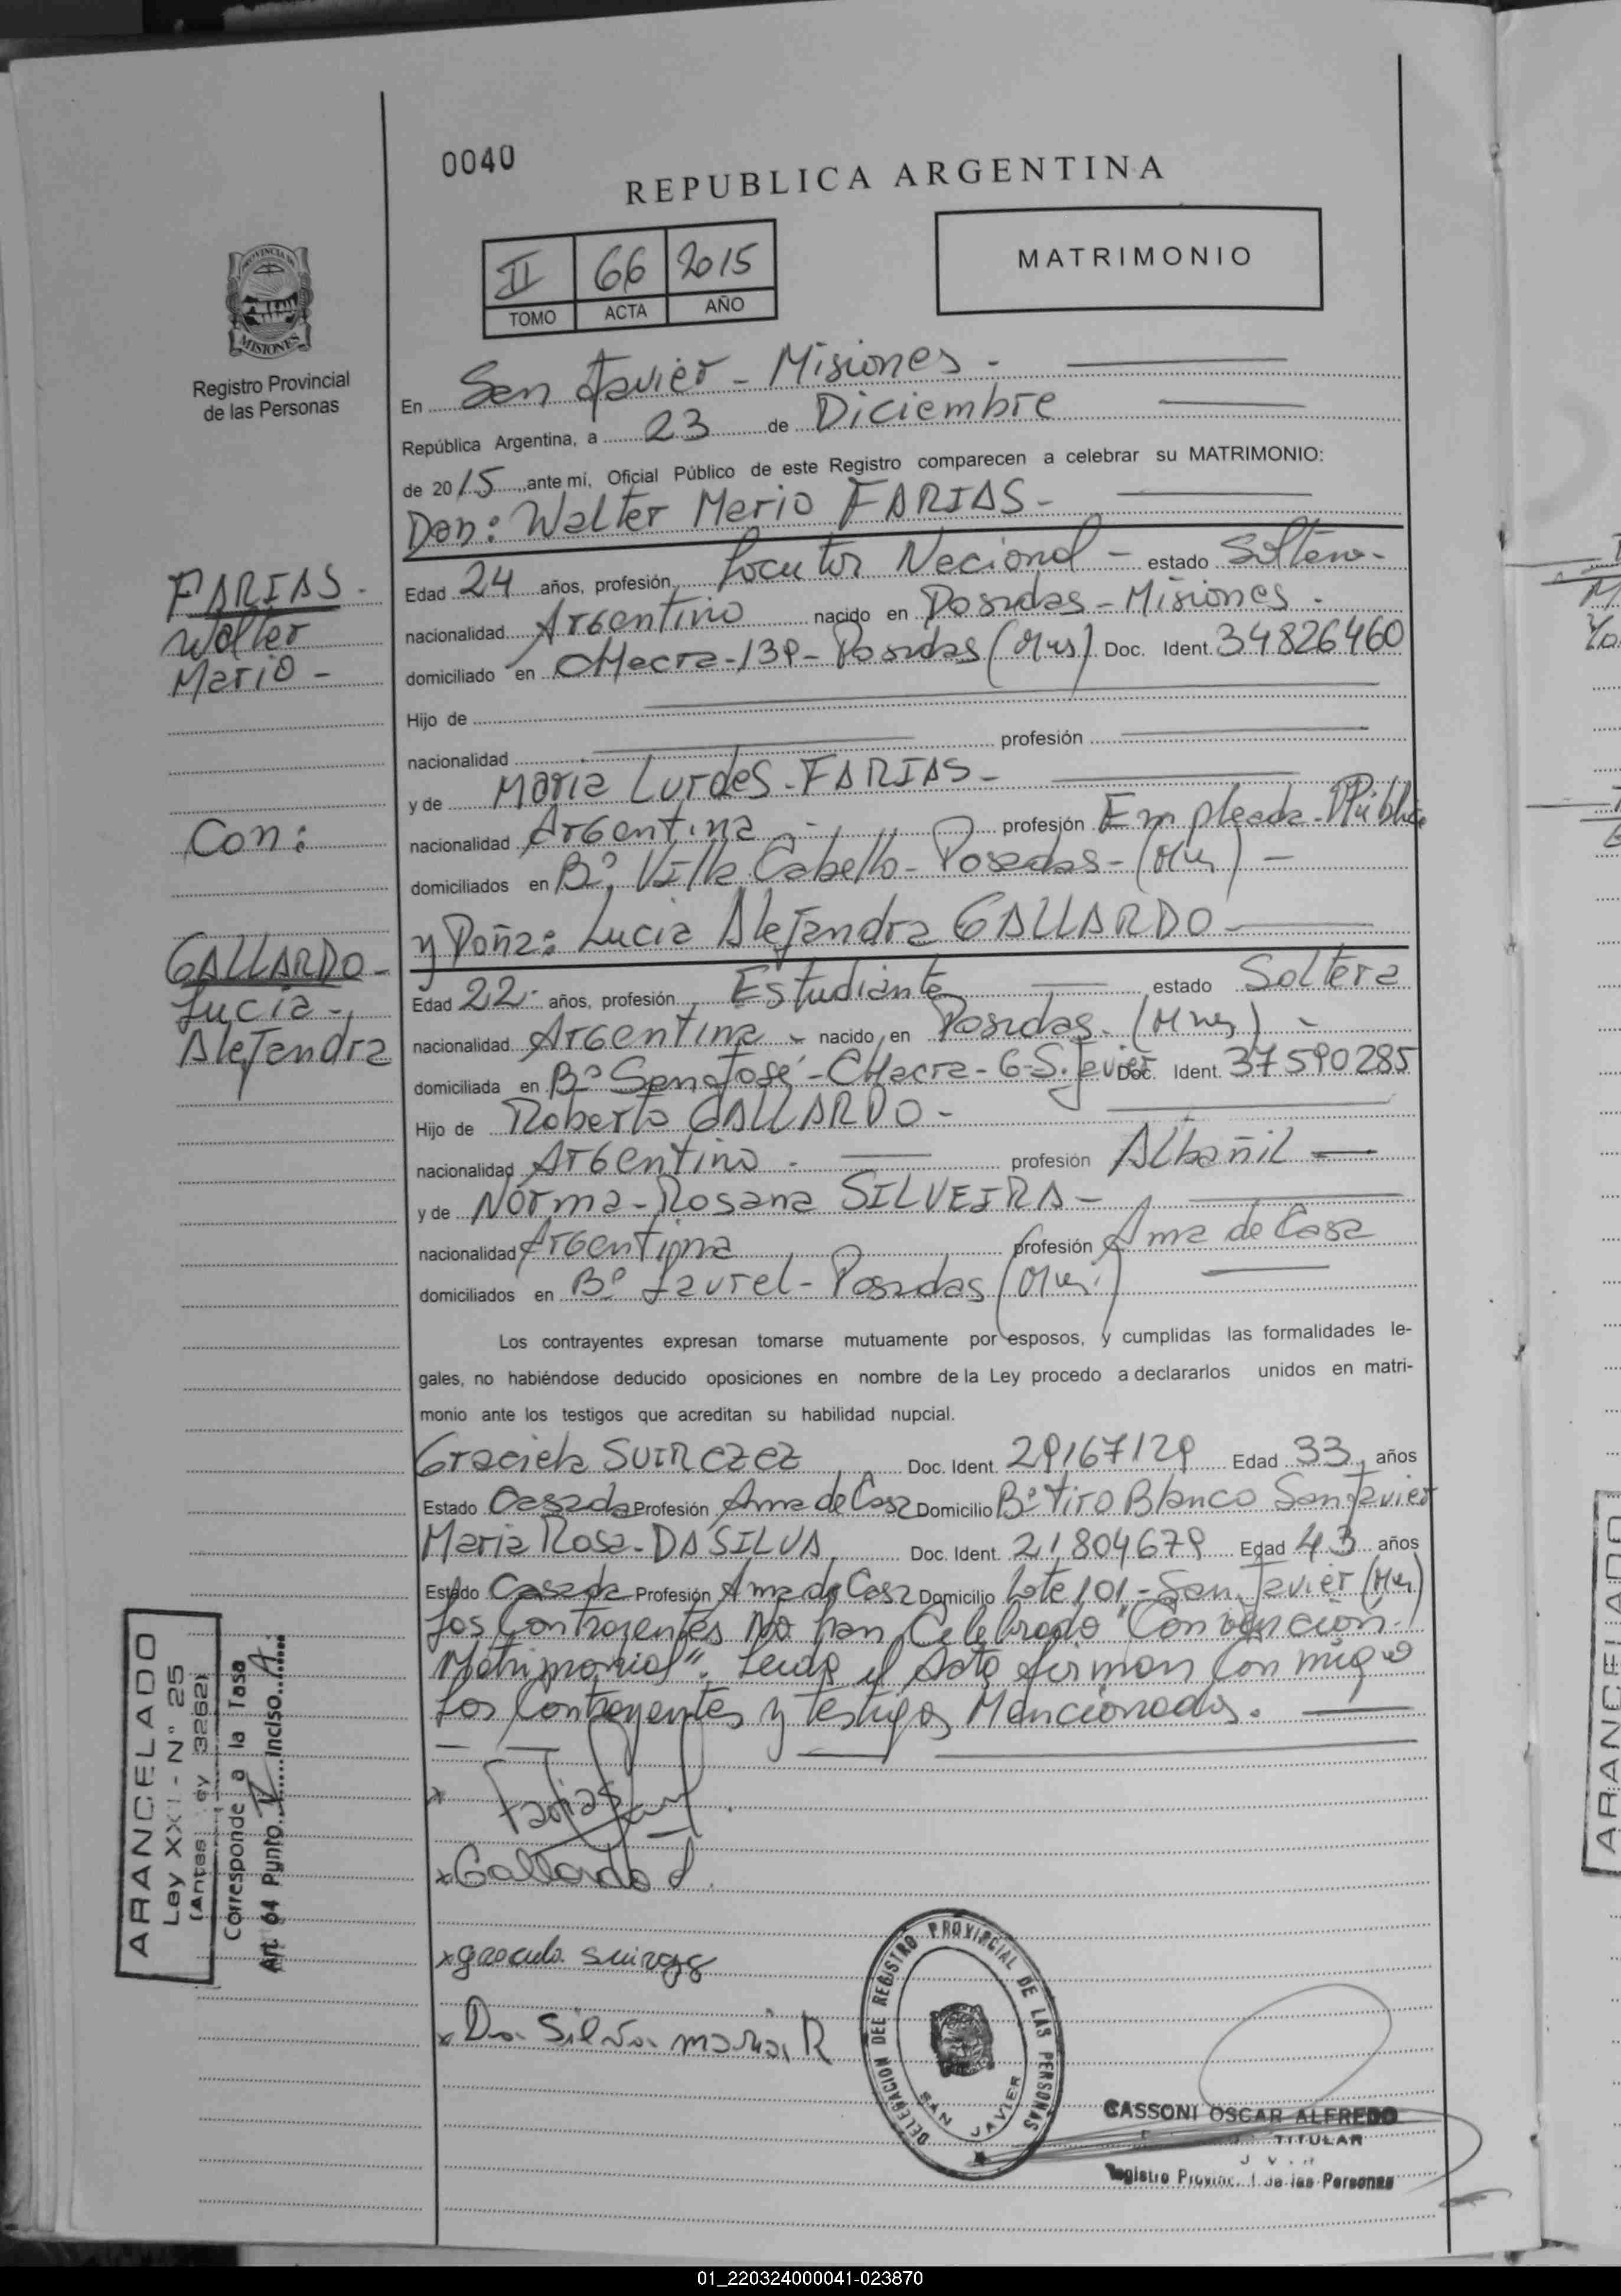 0040
REPUBLICA ARGENTINA
II 66 2015
TOMO ACTA AÑO
MATRIMONIO
PROVINCIA DE
MISIONES
Registro Provincial
de las Personas
En San Javier - Misiones -
República Argentina, a 23 de Diciembre
de 2015 ante mí, Oficial Público de este Registro comparecen a celebrar su MATRIMONIO:
Don: Walter Mario FARIAS -
FARIAS -
Walter
Mario -
Edad 24 años, profesión Locutor Nacional - estado Soltero -
nacionalidad Argentino nacido en Posadas - Misiones -
domiciliado en CHacra - 139 - Posadas (Mns) Doc. Ident. 34826460
Hijo de
nacionalidad profesión
y de Maria Lurdes - FARIAS -
nacionalidad Argentina - profesión Empleada - Pública
Con:
domiciliados en Bº Villa Cabello - Posadas - (Mns) -
y Doña: Lucia Alejandra GALLARDO -
GALLARDO -
Lucia -
Alejandra
Edad 22 - años, profesión Estudiante estado Soltera
nacionalidad Argentina - nacido en Posadas - (Mns) -
domiciliada en Bº San José - CHacra - 6 - S. Javier Doc. Ident. 37590285
Hijo de Roberto GALLARDO -
nacionalidad Argentino - profesión Albañil -
y de Norma - Rosana SILVEIRA -
nacionalidad Argentina profesión Ama de Casa
domiciliados en Bº Laurel - Posadas (Mns)
Los contrayentes expresan tomarse mutuamente por esposos, y cumplidas las formalidades le-
gales, no habiéndose deducido oposiciones en nombre de la Ley procedo a declararlos unidos en matri-
monio ante los testigos que acreditan su habilidad nupcial.
Graciela SUIRCZEZ Doc. Ident. 29167129 Edad 33 años
Estado Casada Profesión Ama de Casa Domicilio Bº Tiro Blanco San Javier
Maria Rosa - DA SILVA Doc. Ident. 21804679 Edad 43 años
Estado Casada Profesión Ama de Casa Domicilio Lote 101 - San Javier (Mns)
Los Contrayentes No han Celebrado "Convención
Matrimonial". Leida el Acta firman Conmigo
Los Contrayentes y testigos Mencionados.
ARANCELADO
Ley XXI - Nº 25
(Antes Ley 3262)
Corresponde a la Tasa
Art. 64 Punto V inciso A
x Farias
x Gallardo L.
x
x Da Silva maria R
DELEGACION DEL REGISTRO PROVINCIAL DE LAS PERSONAS
SAN JAVIER
CASSONI OSCAR ALFREDO
TITULAR
Registro Provincial de las Personas
ARANCELADO
01_220324000041-023870